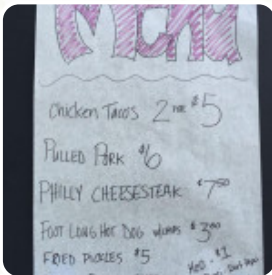 Menu
Chicken Tacos 2 FOR $5
PULLED PORK $6
PHILLY CHEESESTEAK $7⁰⁰
FOOT LONG HOT DOG $3⁰⁰
FRIED PICKLES $5
$1